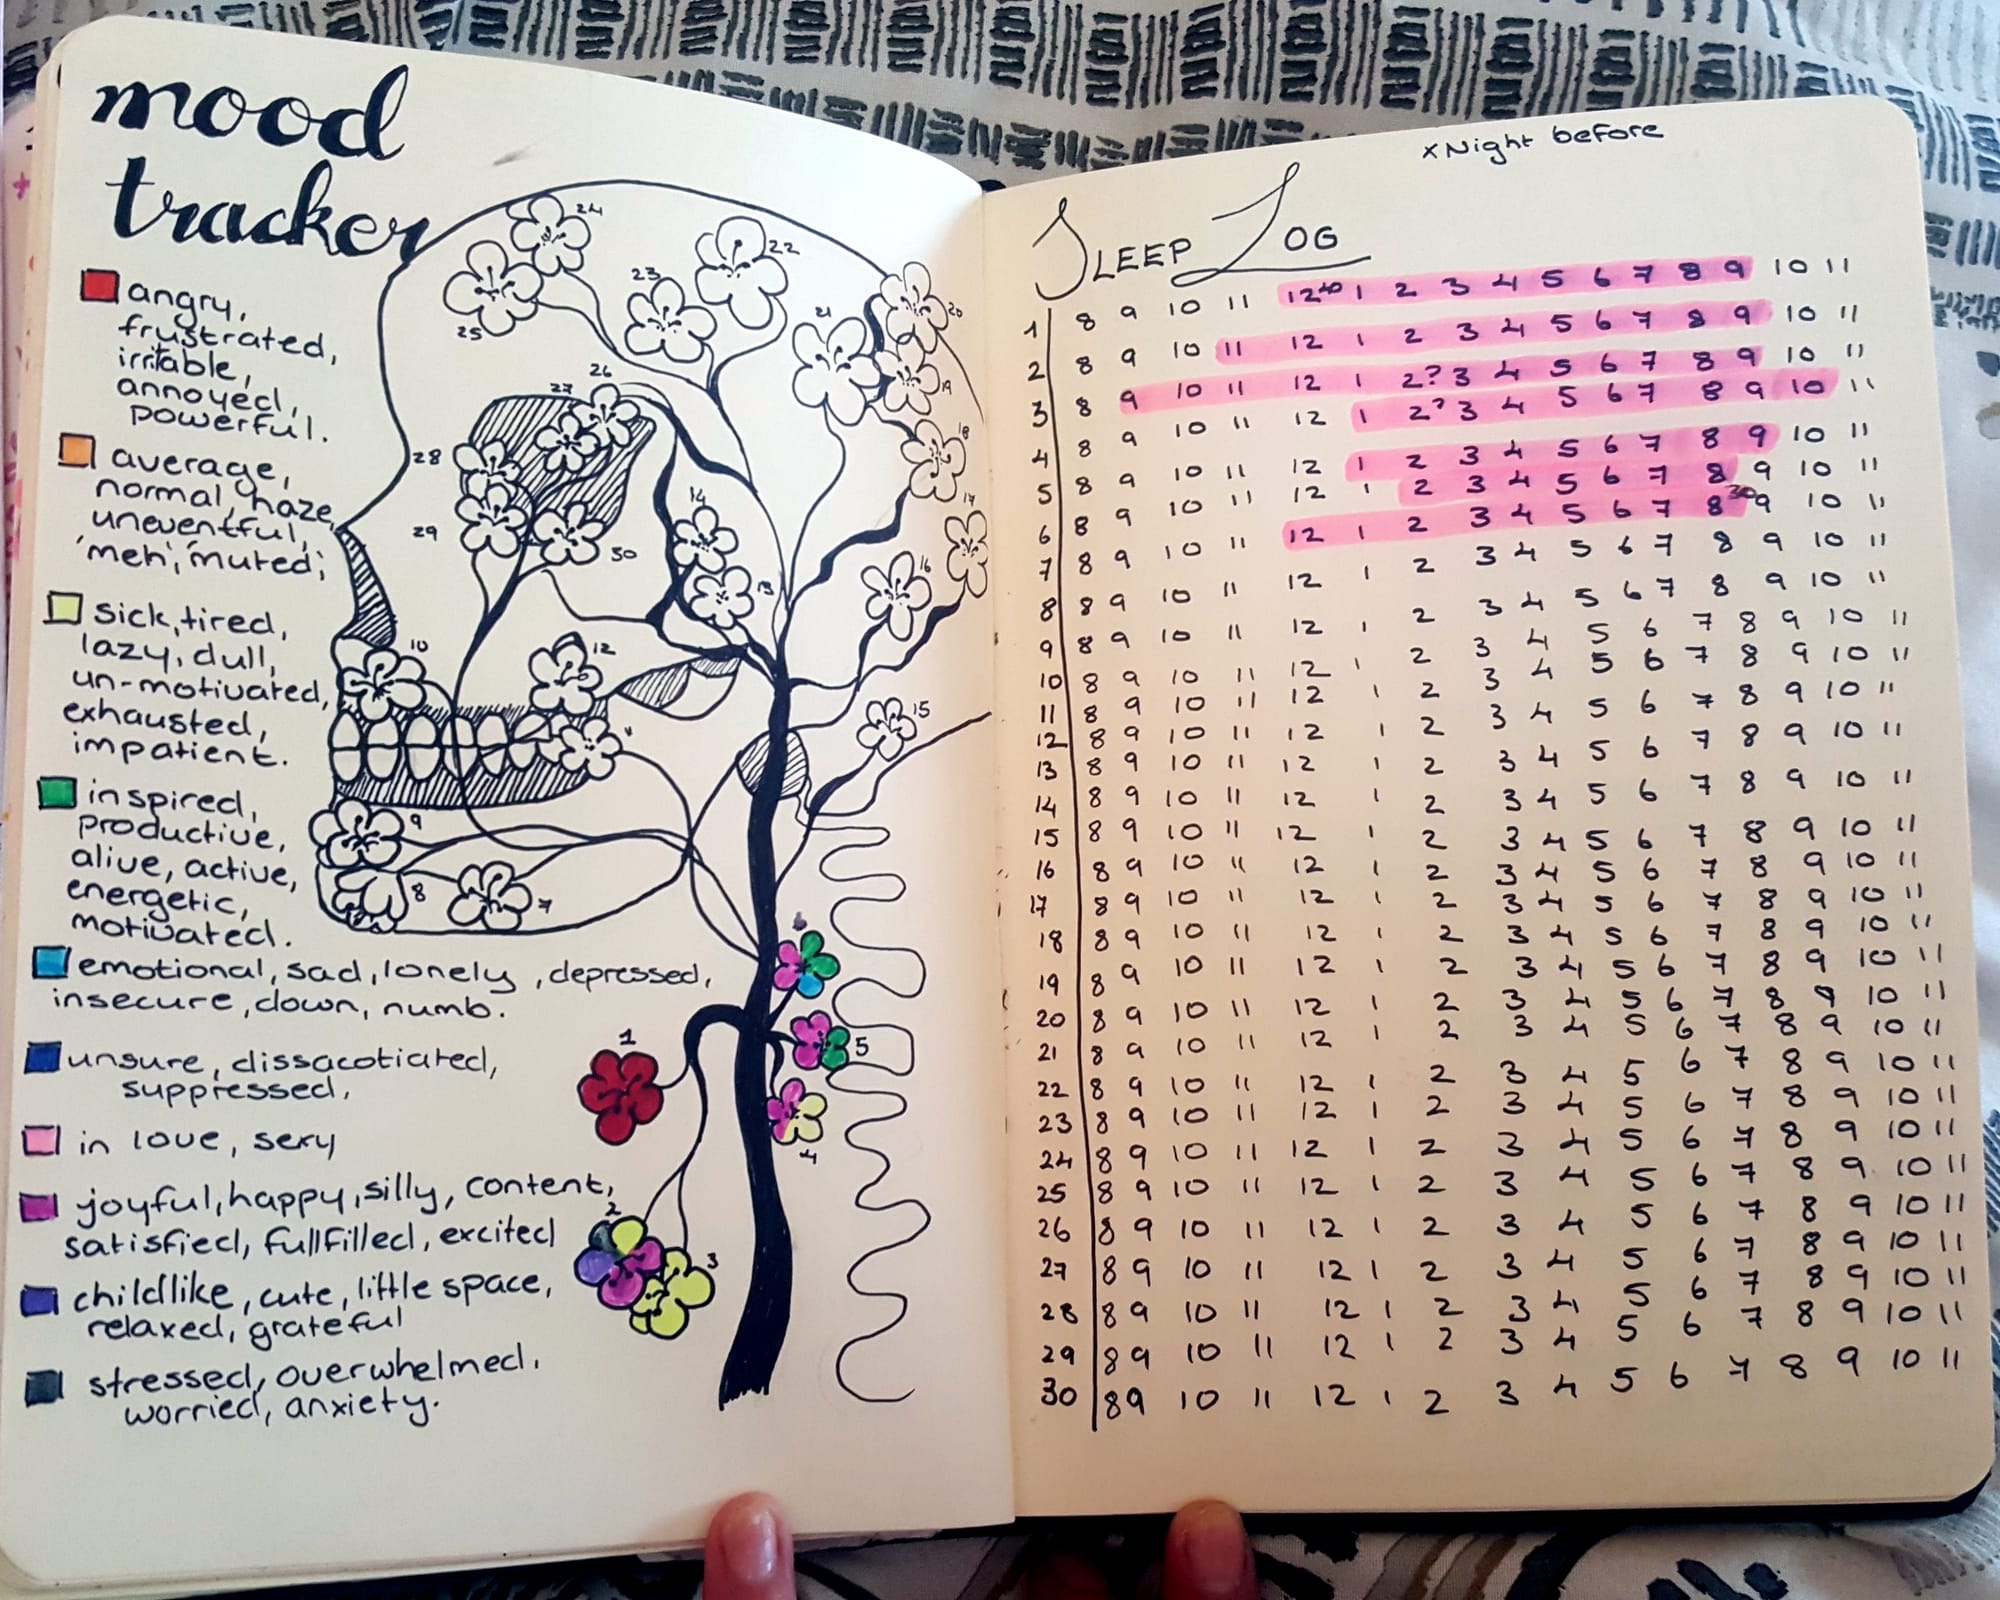 mood
tracker
angry,
frustrated,
irritable,
annoyed,
powerful.
average,
normal, haze,
uneventful,
'meh', 'muted',
sick, tired,
lazy, dull,
un-motivated,
exhausted,
impatient.
inspired,
productive,
alive, active,
energetic,
motivated.
emotional, sad, lonely, depressed,
insecure, down, numb.
unsure, dissacotiated,
suppressed,
in love, sexy
joyful, happy, silly, content,
satisfied, fullfilled, excited
childlike, cute, little space,
relaxed, grateful
stressed, overwhelmed,
worried, anxiety.
24
22
23
25
21
20
26
27
19
28
18
14
17
29
30
16
13
10
12
15
11
9
8
7
6
1
5
4
2
3
x Night before
SLEEP LOG
1 8 9 10 11 12 40 1 2 3 4 5 6 7 8 9 10 11
2 8 9 10 11 12 1 2 3 4 5 6 7 8 9 10 11
3 8 9 10 11 12 1 2? 3 4 5 6 7 8 9 10 11
4 8 9 10 11 12 1 2? 3 4 5 6 7 8 9 10 11
5 8 9 10 11 12 1 2 3 4 5 6 7 8 9 10 11
6 8 9 10 11 12 1 2 3 4 5 6 7 8 9 10 11
7 8 9 10 11 12 1 2 3 4 5 6 7 8 30 9 10 11
8 8 9 10 11 12 1 2 3 4 5 6 7 8 9 10 11
9 8 9 10 11 12 1 2 3 4 5 6 7 8 9 10 11
10 8 9 10 11 12 1 2 3 4 5 6 7 8 9 10 11
11 8 9 10 11 12 1 2 3 4 5 6 7 8 9 10 11
12 8 9 10 11 12 1 2 3 4 5 6 7 8 9 10 11
13 8 9 10 11 12 1 2 3 4 5 6 7 8 9 10 11
14 8 9 10 11 12 1 2 3 4 5 6 7 8 9 10 11
15 8 9 10 11 12 1 2 3 4 5 6 7 8 9 10 11
16 8 9 10 11 12 1 2 3 4 5 6 7 8 9 10 11
17 8 9 10 11 12 1 2 3 4 5 6 7 8 9 10 11
18 8 9 10 11 12 1 2 3 4 5 6 7 8 9 10 11
19 8 9 10 11 12 1 2 3 4 5 6 7 8 9 10 11
20 8 9 10 11 12 1 2 3 4 5 6 7 8 9 10 11
21 8 9 10 11 12 1 2 3 4 5 6 7 8 9 10 11
22 8 9 10 11 12 1 2 3 4 5 6 7 8 9 10 11
23 8 9 10 11 12 1 2 3 4 5 6 7 8 9 10 11
24 8 9 10 11 12 1 2 3 4 5 6 7 8 9 10 11
25 8 9 10 11 12 1 2 3 4 5 6 7 8 9 10 11
26 8 9 10 11 12 1 2 3 4 5 6 7 8 9 10 11
27 8 9 10 11 12 1 2 3 4 5 6 7 8 9 10 11
28 8 9 10 11 12 1 2 3 4 5 6 7 8 9 10 11
29 8 9 10 11 12 1 2 3 4 5 6 7 8 9 10 11
30 8 9 10 11 12 1 2 3 4 5 6 7 8 9 10 11